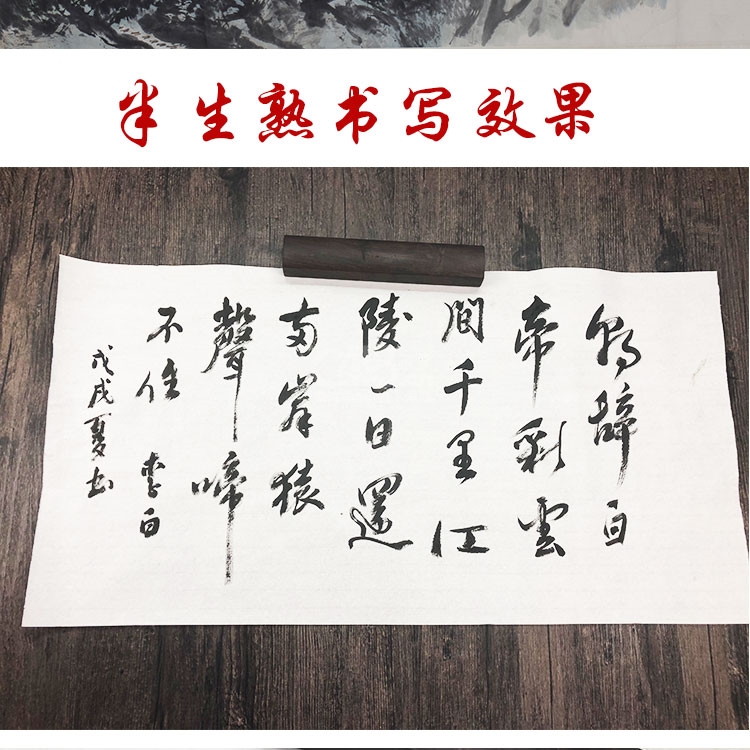 半生熟书写效果
朝辞白
帝彩雲
間千里江
陵一日還
两岸猿
聲啼
不住 李白
戊戌夏书